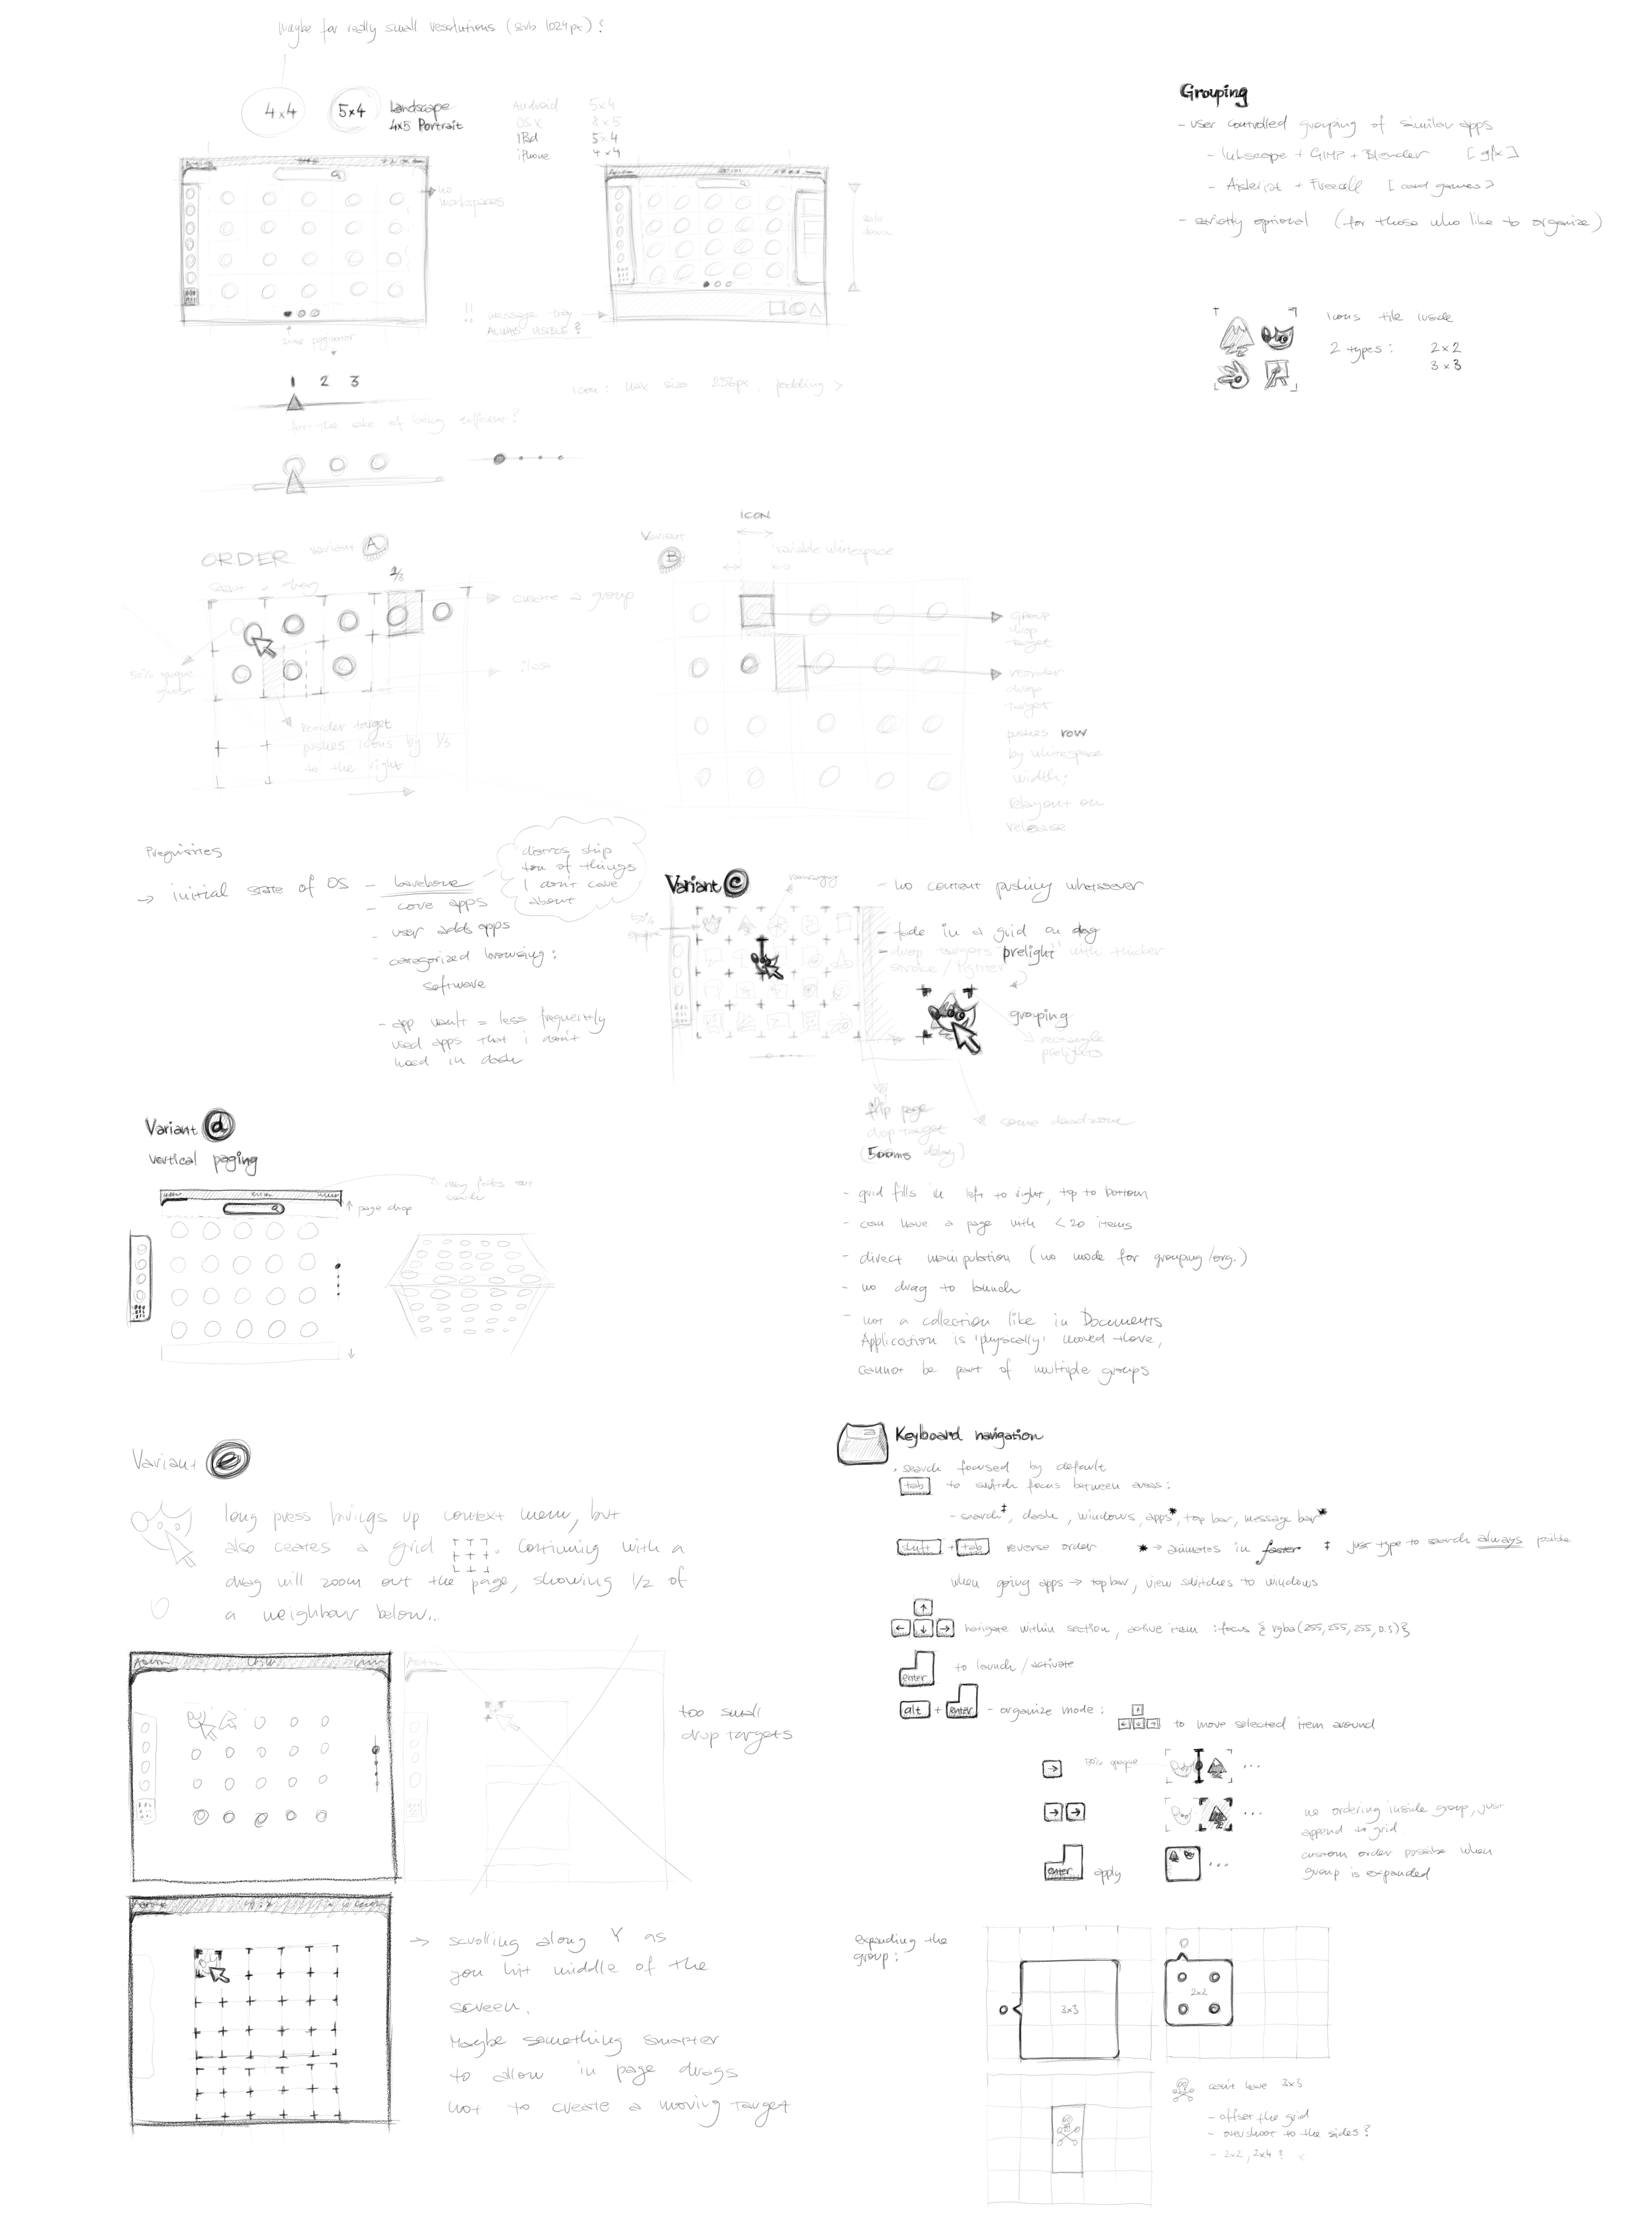 maybe for really small resolutions (sub 1024px)?
4x4
5x4
Landscape
4x5 Portrait
Android 5x4
OSX 8x5
iPad 5x4
iPhone 4x4
no
workspaces
scale
down
!! message tray
ALWAYS VISIBLE?
paginator
1 2 3
icon: max size 256px, padding >
for the sake of being different?
Grouping
- user controlled grouping of similar apps
- Inkscape + GIMP + Blender [gfx]
- Aisleriot + Freecell [card games]
- strictly optional (for those who like to organize)
icons tile inside
2 types: 2x2
3x3
ORDER variant A
start a drag
1/3
create a group
50% opaque
reorder target
pushes icons by 1/3
to the right
Variant
B
ICON
variable whitespace
group
drop
target
reorder
drop
target
pushes row
by whitespace
width;
relayout on
release
→ initial state of OS - barebone
- core apps
- user adds apps
- categorized browsing:
software
- app vault = less frequently
used apps that i don't
need in dash
distros ship
ton of things
I don't care
about
Variant C
rearranging
50%
opaque
- no content pushing whatsoever
- fade in a grid on drag
- drop targets "prelight" with thicker
stroke/lighter
grouping
rectangle
prelights
flip page
drop target
(500ms delay)
some dead zone
- grid fills in left to right, top to bottom
- can have a page with <20 items
- direct manipulation (no mode for grouping/org.)
- no drag to launch
- not a collection like in Documents
Application is 'physically' moved there,
cannot be part of multiple groups
Variant d
vertical paging
drag fades out
search
↑ page drop
Variant e
long press brings up context menu, but
also ceates a grid. Continuing with a
drag will zoom out the page, showing 1/2 of
a neighbour below...
too small
drop targets
→ scrolling along Y as
you hit middle of the
screen.
Maybe something smarter
to allow in page drags
not to create a moving target
Keyboard navigation
. search focused by default
tab to switch focus between areas:
- search‡, dash, windows, apps*, top bar, message bar*
shift + tab reverse order * → animates in faster ‡ just type to search always possible
when going apps → topbar, view switches to windows
↑
← ↓ → navigate within section, active item :focus { rgba(255,255,255,0.3)}
enter to launch / activate
alt + enter - organize mode: ↑
← ↓ → to move selected item around
→ 50% opaque ...
→ → ... no ordering inside group, just
append to grid
custom order possible when
group is expanded
enter apply ...
expanding the
group:
3x3
2x2
can't have 3x3
- offset the grid
- overshoot to the sides?
- 2x2, 2x4?